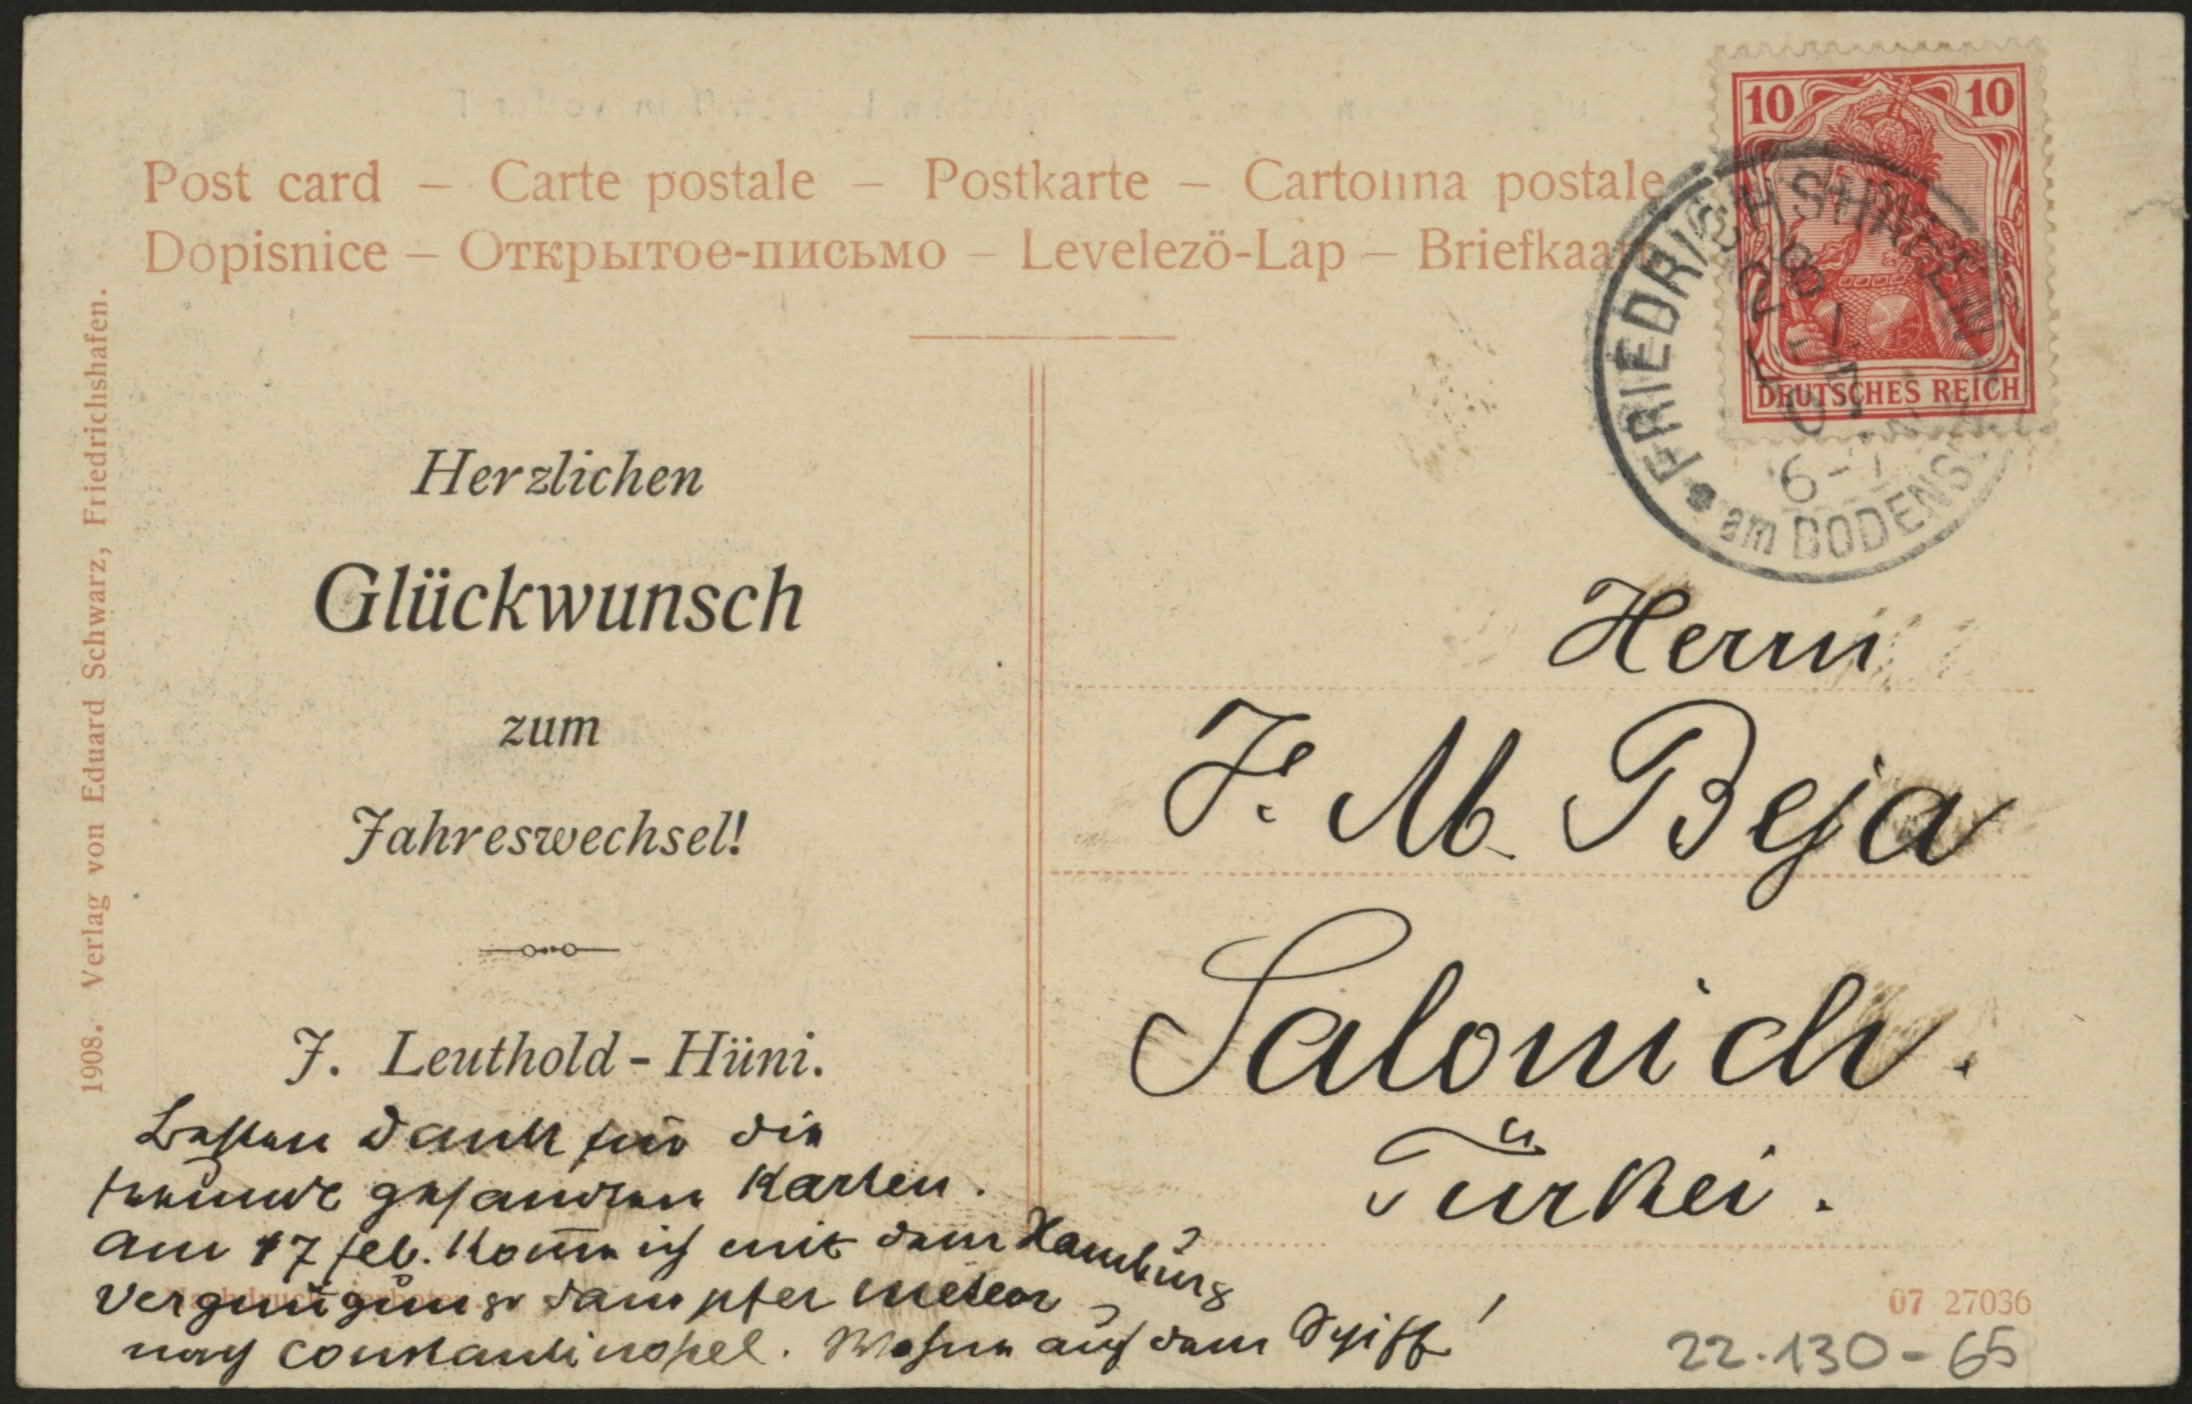 Post card – Carte postale – Postkarte – Cartolina postale
Dopisnice – Открытое-письмо – Levelezö-Lap – Briefkaart
10 10
DEUTSCHES REICH
FRIEDRICHSHAFEN
am BODENSEE
6-7
1908. Verlag von Eduard Schwarz, Friedrichshafen.
Herzlichen
Glückwunsch
zum
Jahreswechsel!
J. Leuthold - Hüni.
Besten Dank für die
freundl gesandten Karten.
Am 17 feb. komme ich mit dem Hamburg
Vergnügungsdampfer Meteor
nach Constantinopel. Wohne auf dem Schiff!
Herrn
J. M. Beja
Salonich.
Türkei.
07 27036
22.130-65